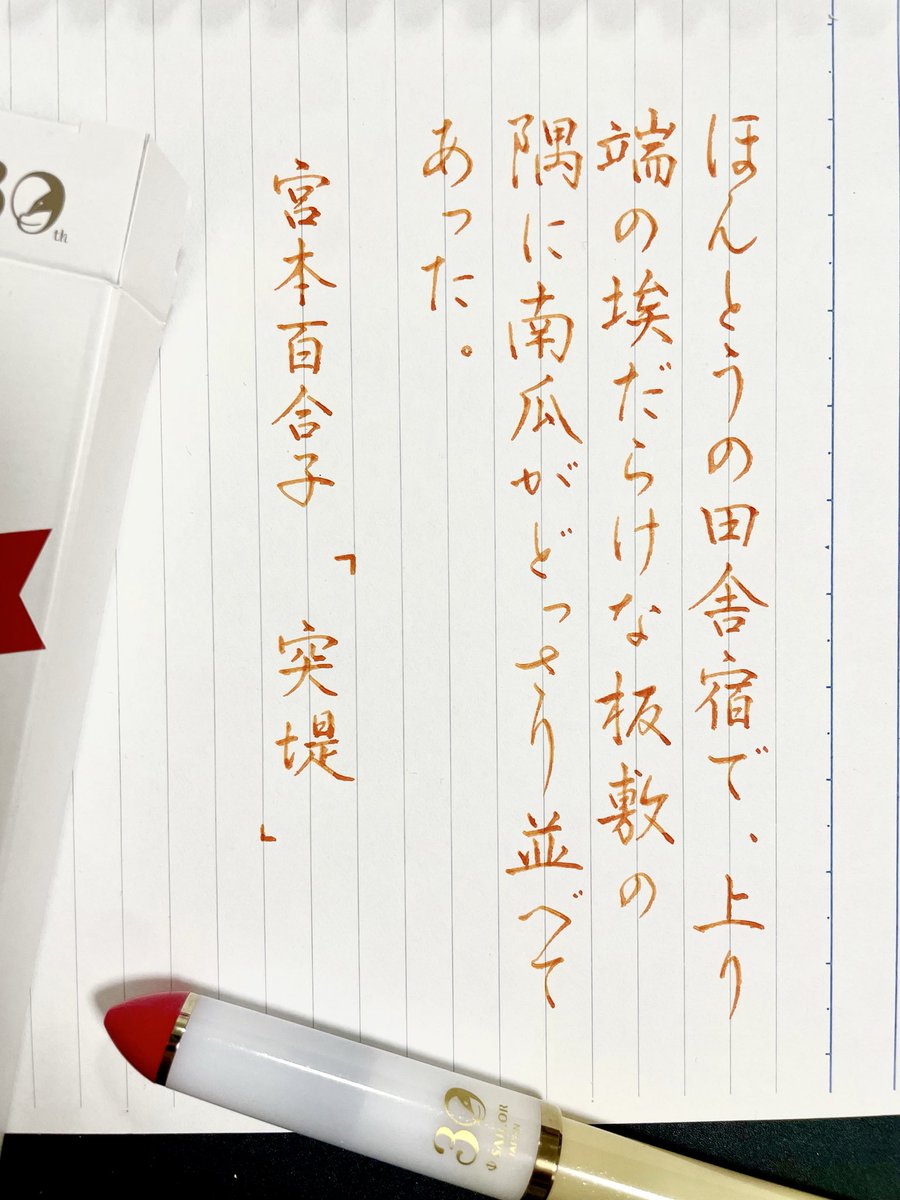 ほんとうの田舎宿で、上り
端の埃だらけな板敷の
隅に南瓜がどっさり並べて
あった。
宮本百合子「突堤」
30th
30
SAILOR
JAPAN